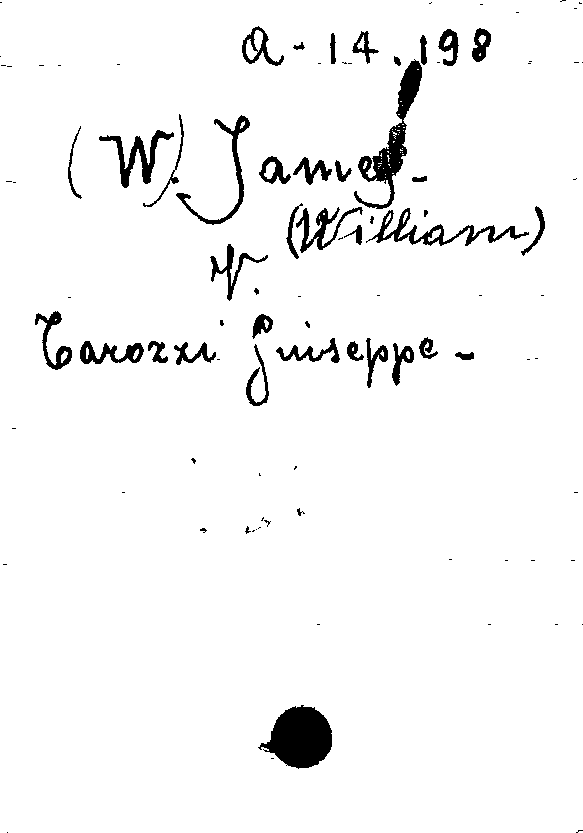 a-14.198
(W). James-
(William)
V.
Tarozzi Giuseppe-